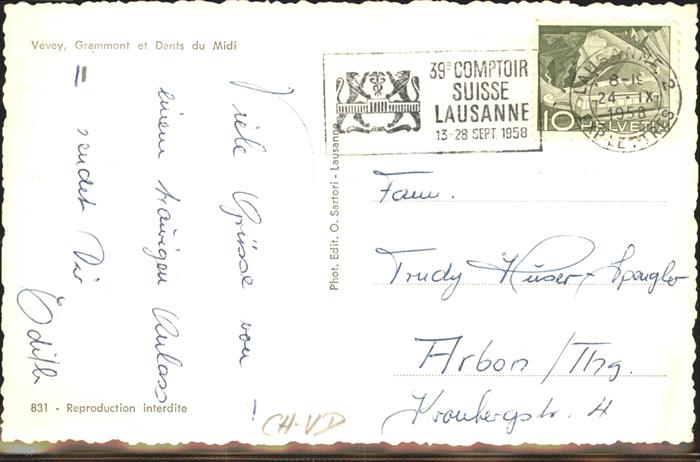 Vevey, Grammont et Dents du Midi
Viele Grüsse von
einem traurigen Anlass
sendet Dir
Edith
831 - Reproduction interdite
CH-VD
Phot. Edit. O. Sartori - Lausanne
39e COMPTOIR
SUISSE
LAUSANNE
13-28 SEPT. 1958
LAUSANNE 2
8-19
24. IX
1958
EXP. LETTRES
10 HELVETIA
Fam.
Trudy Hüser-Spengler
Arbon / Thg.
Kronbergstr. 4